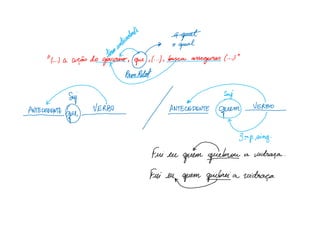 tem antecedente
a qual
o qual
"(...) a ação do governo, que, (...), busca assegurar (...)"
Pron. Relat
Suj
ANTECEDENTE que VERBO
/
Suj
ANTECEDENTE quem VERBO
3ª p. sing.
Fui eu quem quebrou a vidraça.
Fui eu quem quebrei a vidraça